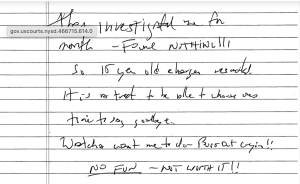 They investigated me for
gov.uscourts.nysd.466715.614.0
month — Found NOTHING!!!
So 15 year old charges resulted
It is a treat to be able to choose ones
time to say goodbye.
Watcha want me to do — Burst out crying!!
NO FUN — NOT WORTH IT!!